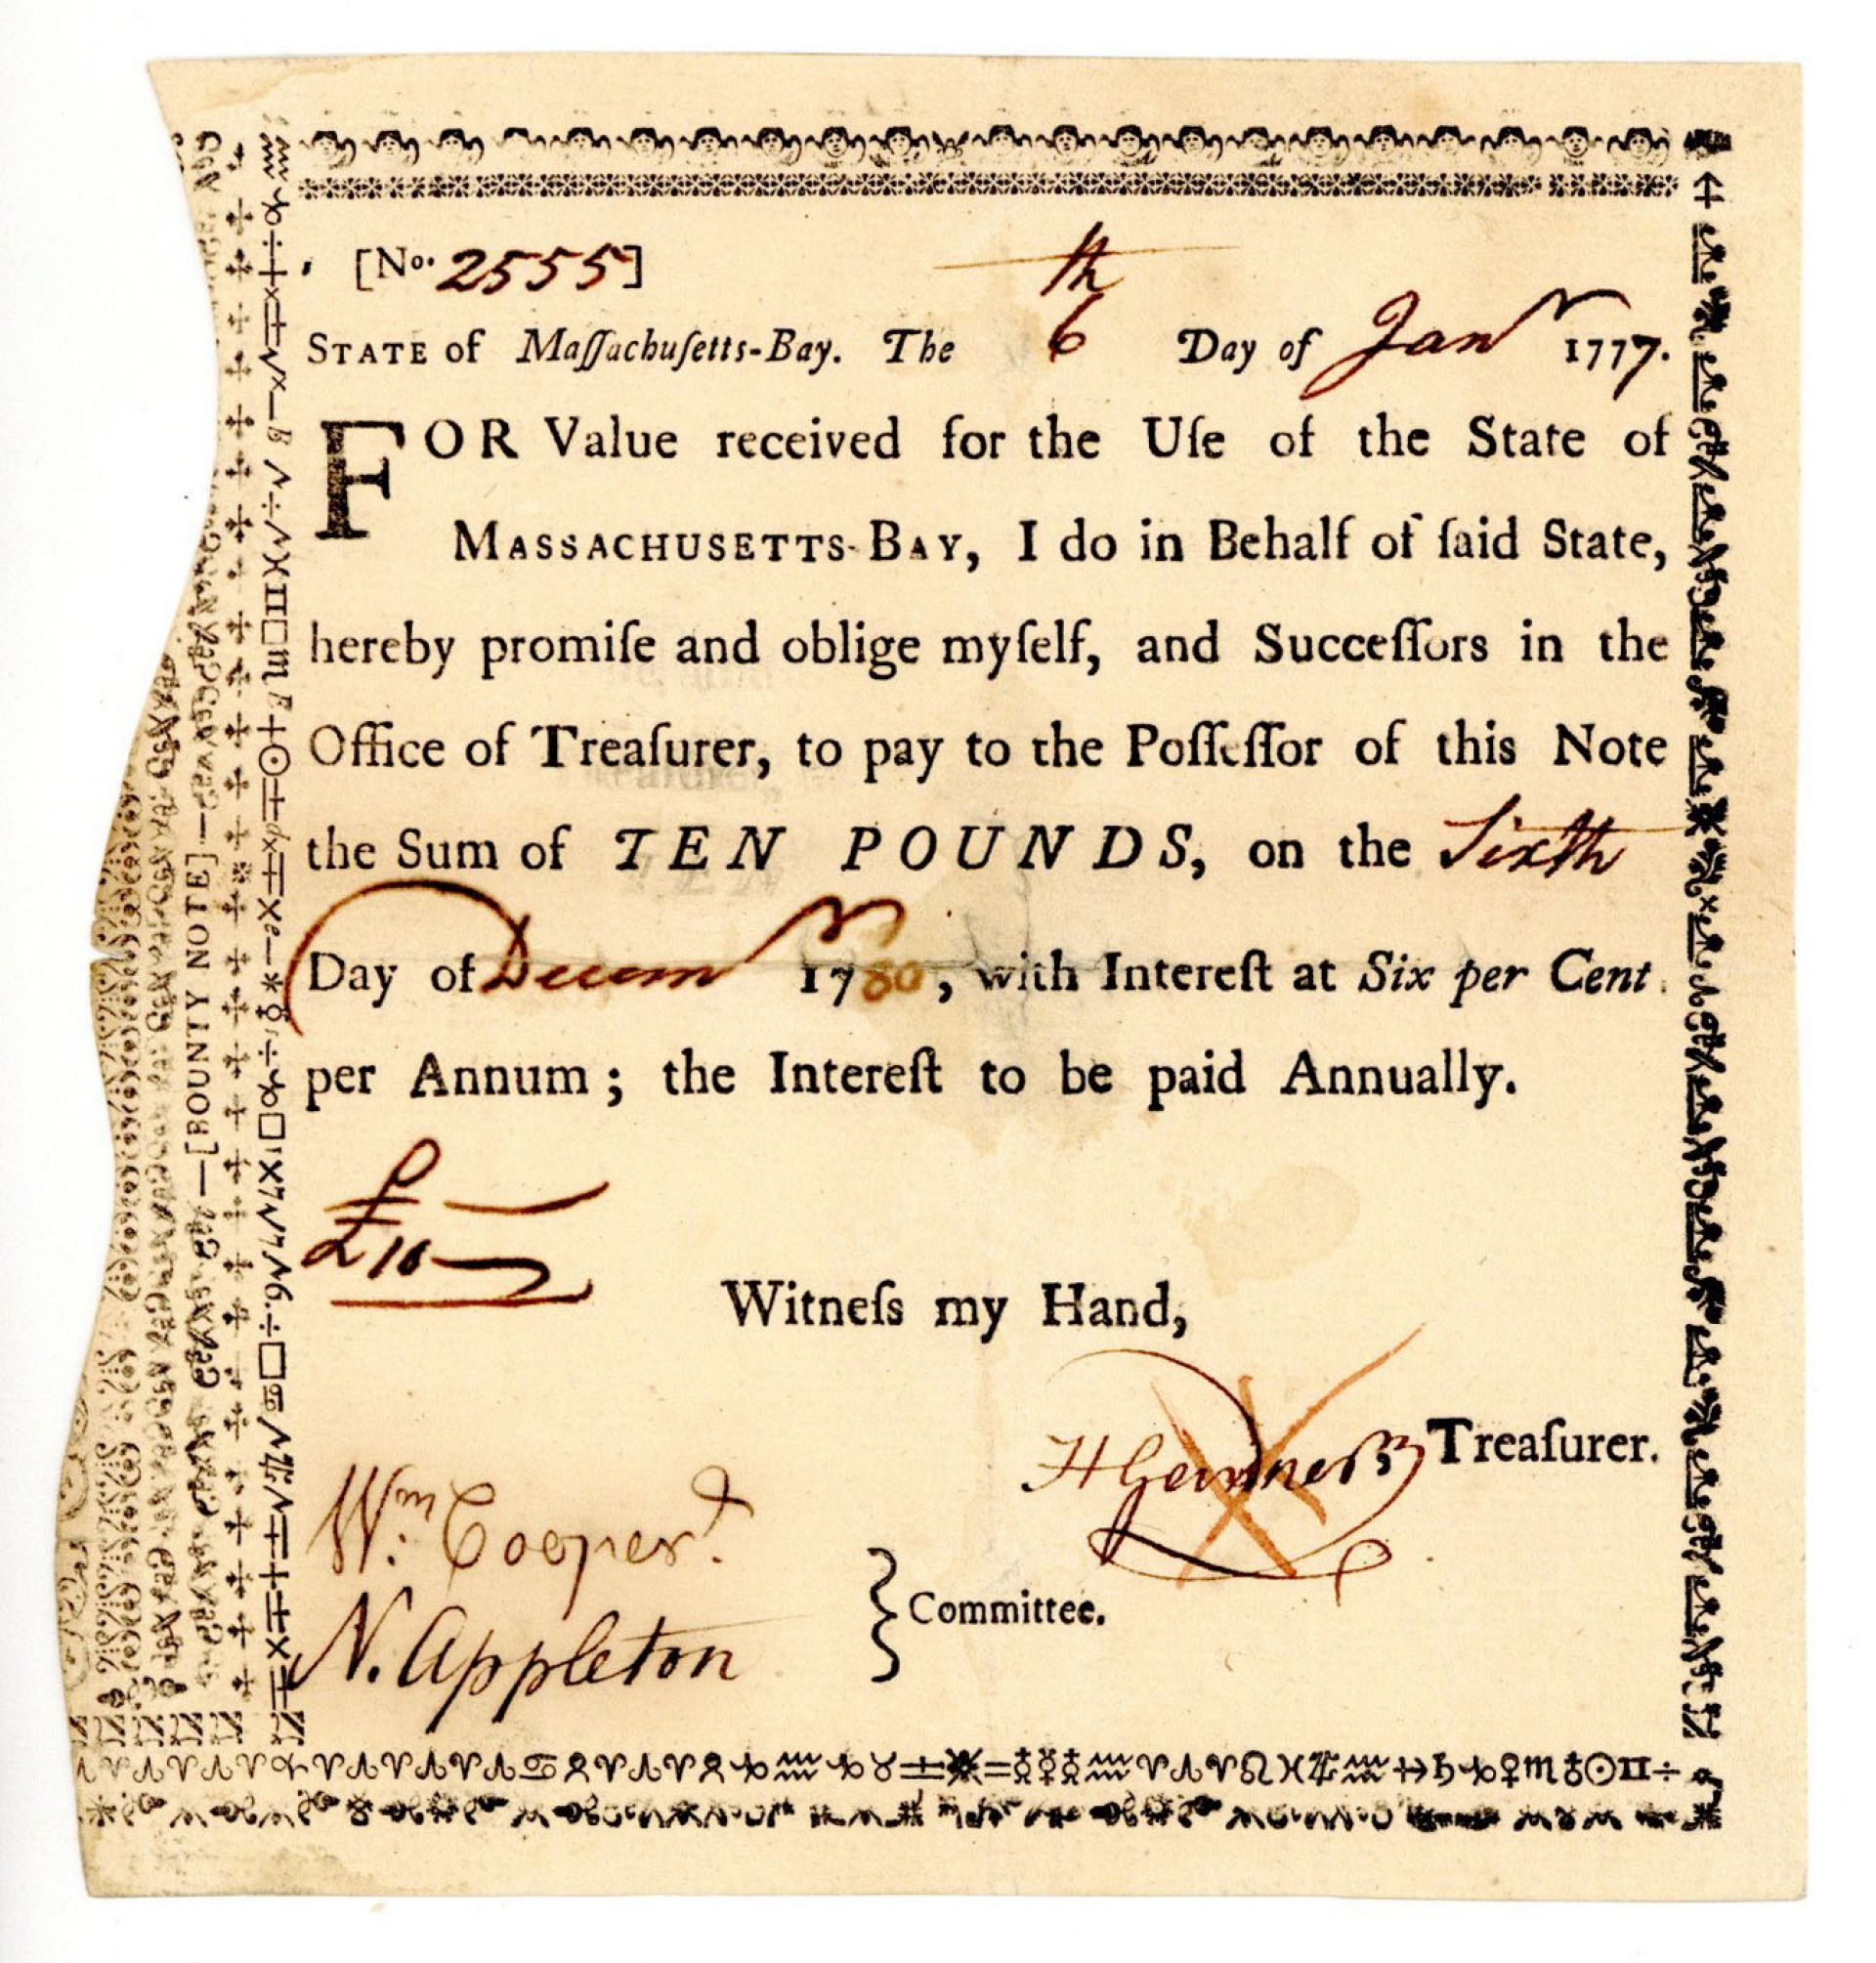 [No. 2555]
STATE of Maſſachuſetts-Bay. The 6th Day of Janr 1777.
FOR Value received for the Uſe of the State of
MASSACHUSETTS-BAY, I do in Behalf of ſaid State,
hereby promiſe and oblige myſelf, and Succeſſors in the
Office of Treaſurer, to pay to the Poſſeſſor of this Note
the Sum of TEN POUNDS, on the Sixth
Day of Decemr 1780, with Intereſt at Six per Cent.
per Annum; the Intereſt to be paid Annually.
£10
Witneſs my Hand,
H Gardner Treaſurer.
Wm. Cooper
N. Appleton
} Committee.
—[BOUNTY NOTE]—